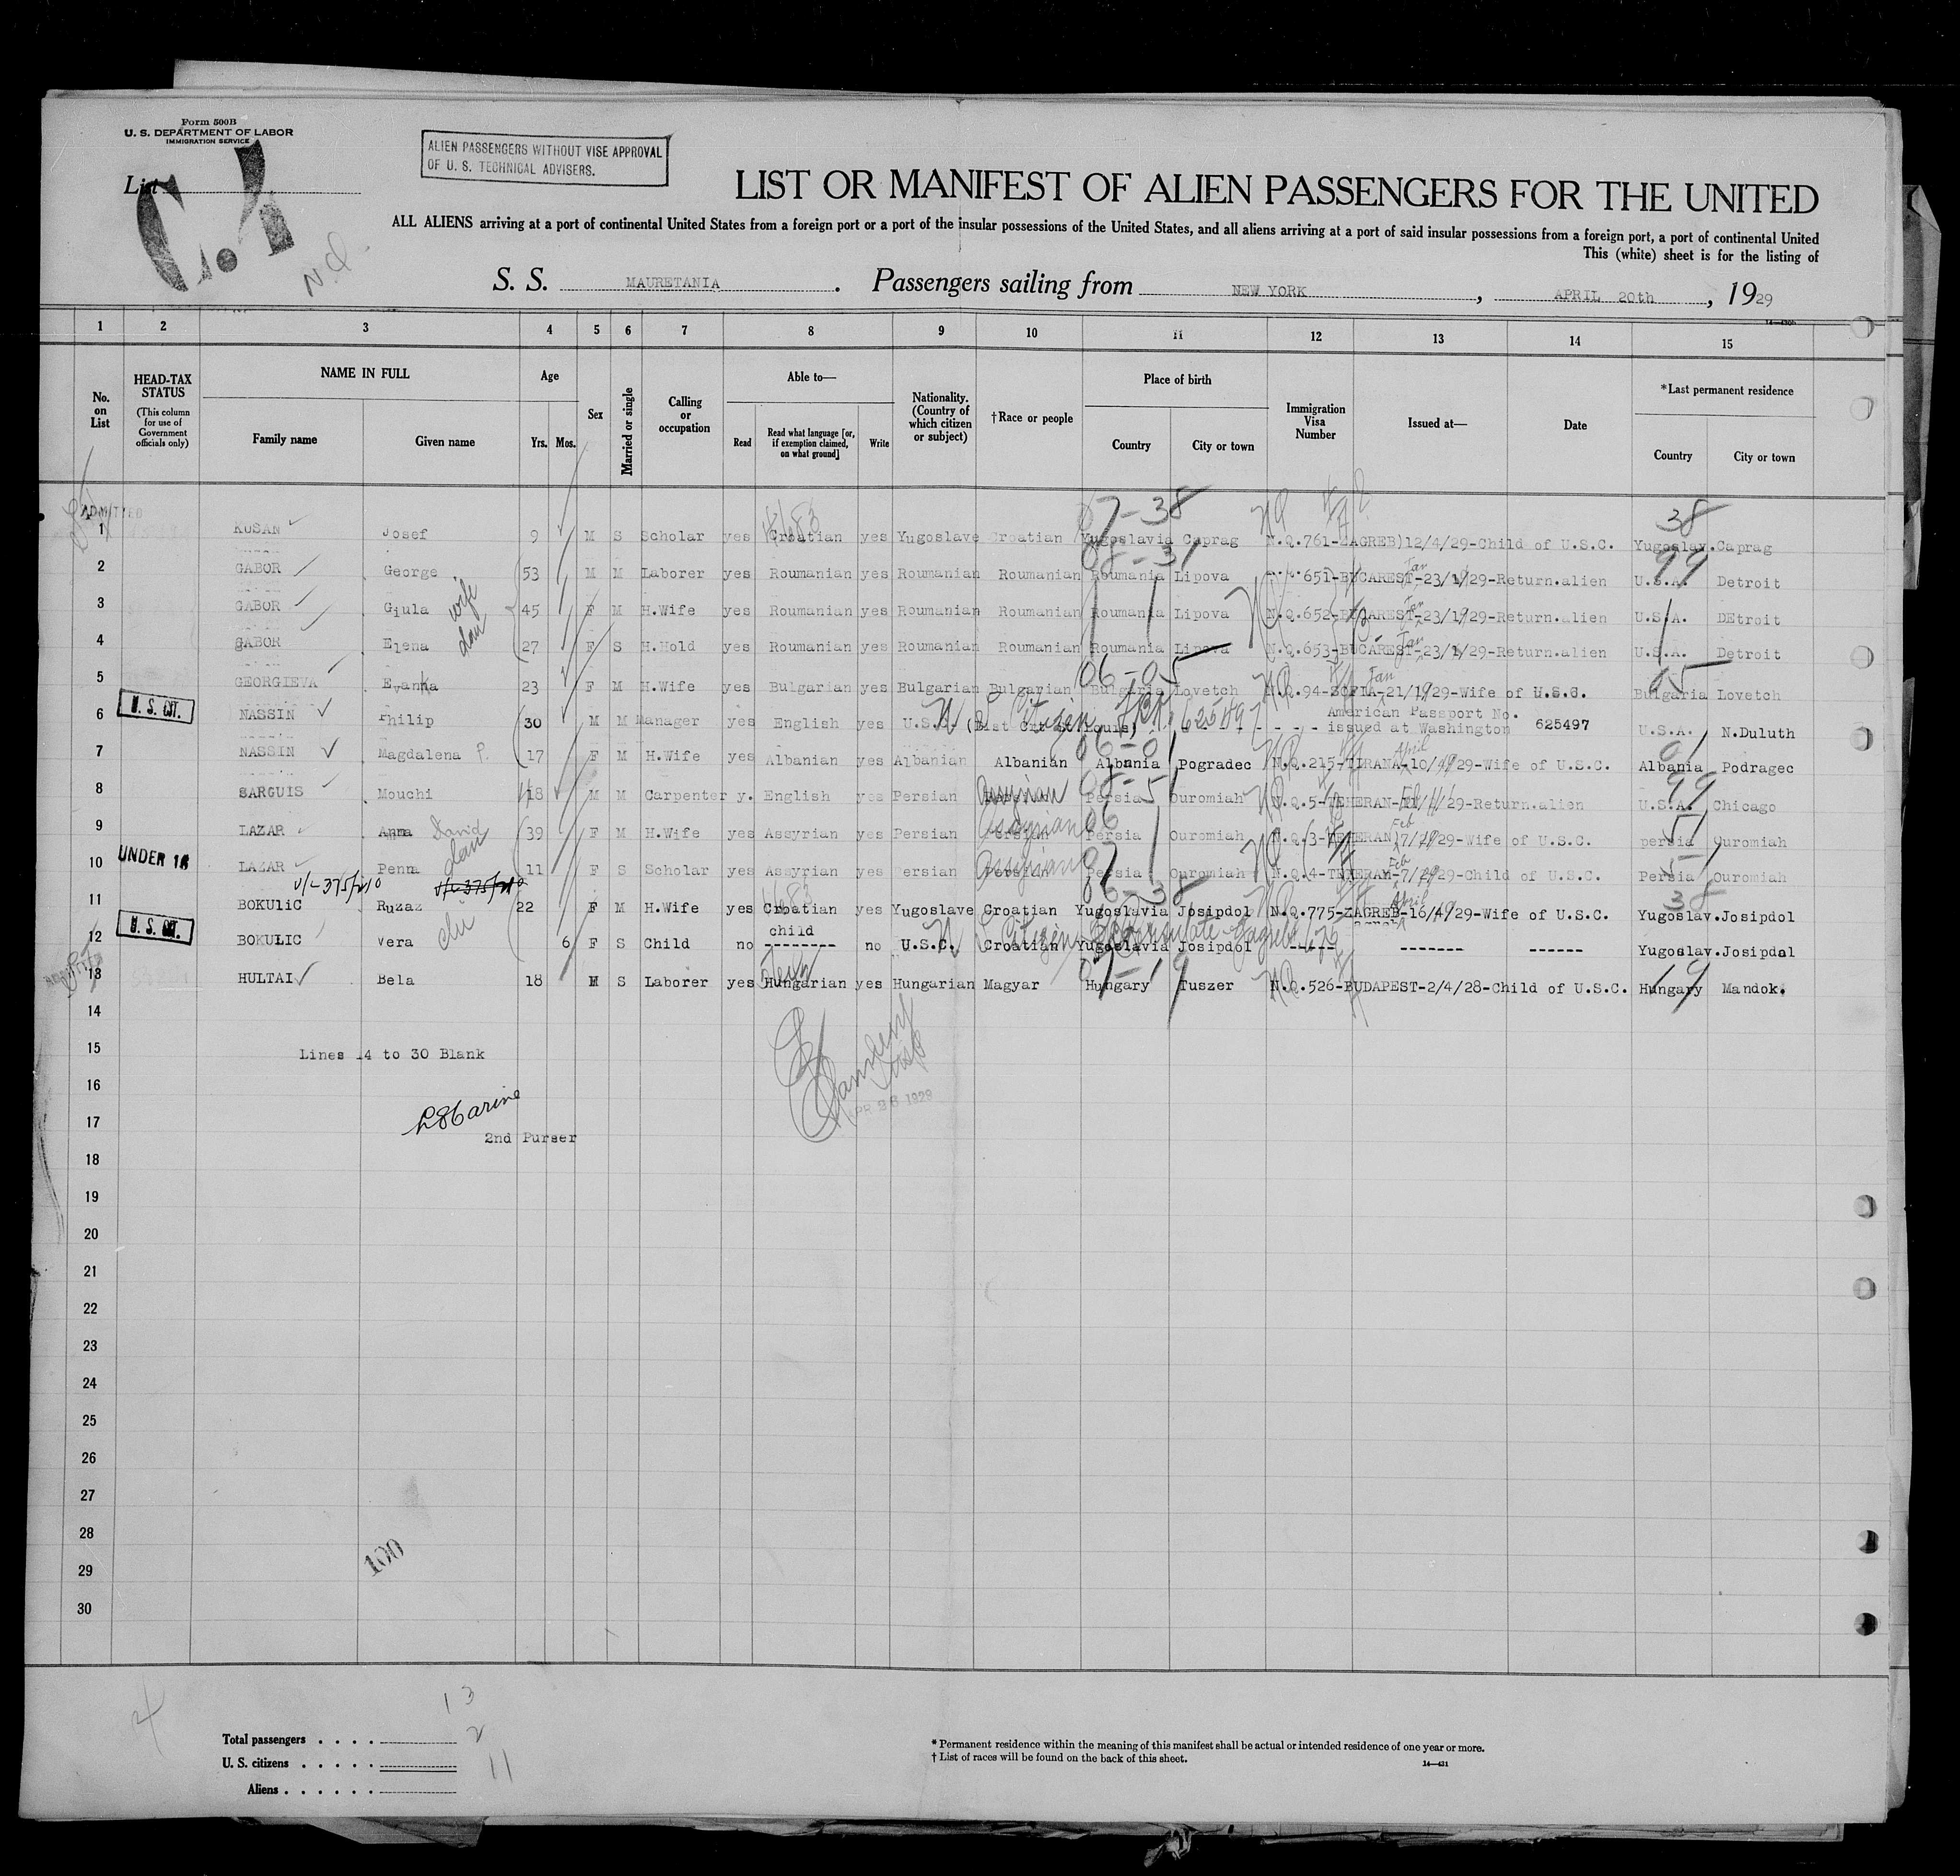 Form 500B
U. S. DEPARTMENT OF LABOR
IMMIGRATION SERVICE
ALIEN PASSENGERS WITHOUT VISE APPROVAL
OF U. S. TECHNICAL ADVISERS.
List
LIST OR MANIFEST OF ALIEN PASSENGERS FOR THE UNITED
ALL ALIENS arriving at a port of continental United States from a foreign port or a port of the insular possessions of the United States, and all aliens arriving at a port of said insular possessions from a foreign port, a port of continental United
This (white) sheet is for the listing of
S. S. MAURETANIA. Passengers sailing from NEW YORK, APRIL 20th, 1929
1 2 3 4 5 6 7 8 9 10 11 12 13 14 15
No. on List
HEAD-TAX STATUS (This column for use of Government officials only)
NAME IN FULL
Family name Given name
Age
Yrs. Mos.
Sex
Married or single
Calling or occupation
Able to—
Read
Read what language [or, if exemption claimed, on what ground]
Write
Nationality. (Country of which citizen or subject)
†Race or people
Place of birth
Country City or town
Immigration Visa Number
Issued at—
Date
*Last permanent residence
Country City or town
ADMITTED
1 KUSAN Josef 9 M S Scholar yes Croatian yes Yugoslave Croatian Yugoslavia Caprag N.Q.761-ZAGREB)12/4/29-Child of U.S.C. Yugoslav.Caprag
2 GABOR George 53 M M Laborer yes Roumanian yes Roumanian Roumanian Roumania Lipova 651-BUCAREST-23/1/29-Return.alien U.S.A. Detroit
3 GABOR Giula wife 45 F M H.Wife yes Roumanian yes Roumanian Roumanian Roumania Lipova N.Q.652-BUCAREST-23/1/29-Return.alien U.S.A. DEtroit
4 GABOR Elena dau 27 F S H.Hold yes Roumanian yes Roumanian Roumanian Roumania Lipova N.Q.653-BUCAREST-23/1/29-Return.alien U.S.A. Detroit
5 GEORGIEVA Evanka 23 F M H.Wife yes Bulgarian yes Bulgarian Bulgarian Bulgaria Lovetch N.Q.94-SOFIA-21/1/29-Wife of U.S.C. Bulgaria Lovetch
U. S. CIT.
6 NASSIN Philip 30 M M Manager yes English yes U.S.C. American Passport No. issued at Washington 625497 U.S.A. N.Duluth
7 NASSIN Magdalena P. 17 F M H.Wife yes Albanian yes Albanian Albanian Albania Pogradec N.Q.215-TIRANA-10/4/29-Wife of U.S.C. Albania Podragec
8 SARGUIS Mouchi 18 M M Carpenter y. English yes Persian Assyrian Persia Ouromiah N.Q.5-TEHERAN- /29-Return.alien U.S.A. Chicago
9 LAZAR Anna David 39 F M H.Wife yes Assyrian yes Persian Assyrian Persia Ouromiah N.Q.3-TEHERAN)7/2/29-Wife of U.S.C. persia Ouromiah
UNDER 16
10 LAZAR Penna dau 11 F S Scholar yes Assyrian yes Persian Assyrian Persia Ouromiah N.Q.4-TEHERAN-7/2/29-Child of U.S.C. Persia Ouromiah
11 BOKULiC Ruzaz 22 F M H.Wife yes Croatian yes Yugoslave Croatian Yugoslavia Josipdol N.Q.775-ZAGREB-16/4/29-Wife of U.S.C. Yugoslav.Josipdol
U. S. CIT.
12 BOKULIC Vera 6 F S Child no child -------- no U.S.C. Croatian Yugoslavia Josipdol ----- ------- ------ Yugoslav.Josipdal
13 HULTAI Bela 18 M S Laborer yes Hungarian yes Hungarian Magyar Hungary Tuszer N.Q.526-BUDAPEST-2/4/28-Child of U.S.C. Hungary Mandok.
14
15 Lines 14 to 30 Blank
16
17
APR 26 1929
2nd Purser
18
19
20
21
22
23
24
25
26
27
28
29
100
30
Total passengers . . . . 13
U. S. citizens . . . . . 2
Aliens . . . . . . 11
* Permanent residence within the meaning of this manifest shall be actual or intended residence of one year or more.
† List of races will be found on the back of this sheet.
14—431